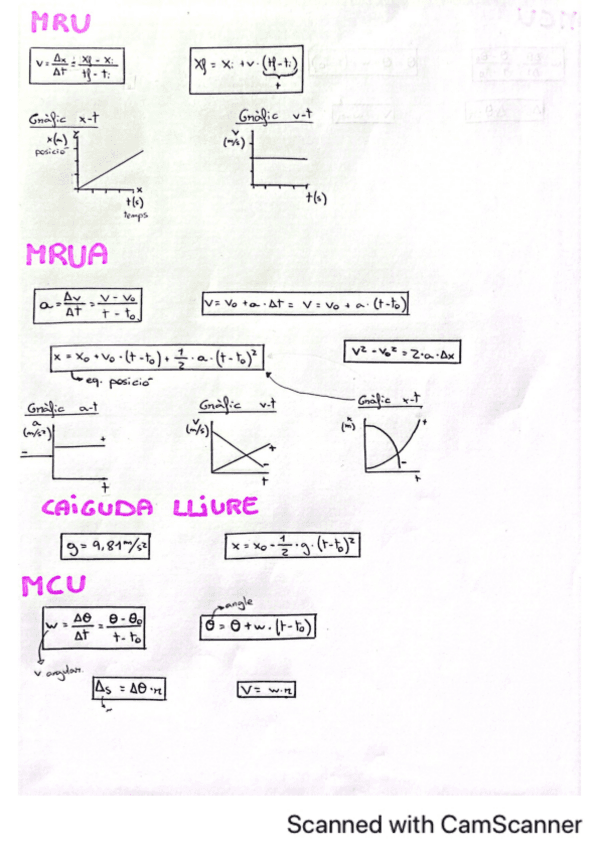 MRU
v = Δx/Δt = xf - xi / tf - ti
xf = xi + v · (tf - ti)
t
Gràfic x-t
x(m)
posició
x
t(s)
temps
Gràfic v-t
v
(m/s)
t(s)
MRUA
a = Δv/Δt = v - v₀ / t - t₀
v = v₀ + a · Δt = v = v₀ + a · (t-t₀)
x = x₀ + v₀ · (t-t₀) + 1/2 · a · (t-t₀)²
eq. posició
v² - v₀² = 2·a·Δx
Gràfic a-t
a
(m/s²)
+
-
t
Gràfic v-t
v
(m/s)
+
-
t
Gràfic x-t
x
(m)
+
-
t
CAiGUDA LLiURE
g = 9,81 m/s²
x = x₀ - 1/2 · g · (t-t₀)²
MCU
w = Δθ/Δt = θ - θ₀ / t - t₀
v angular.
angle
θ = θ + w · (t-t₀)
Δs = Δθ·r
v = w·r
Scanned with CamScanner